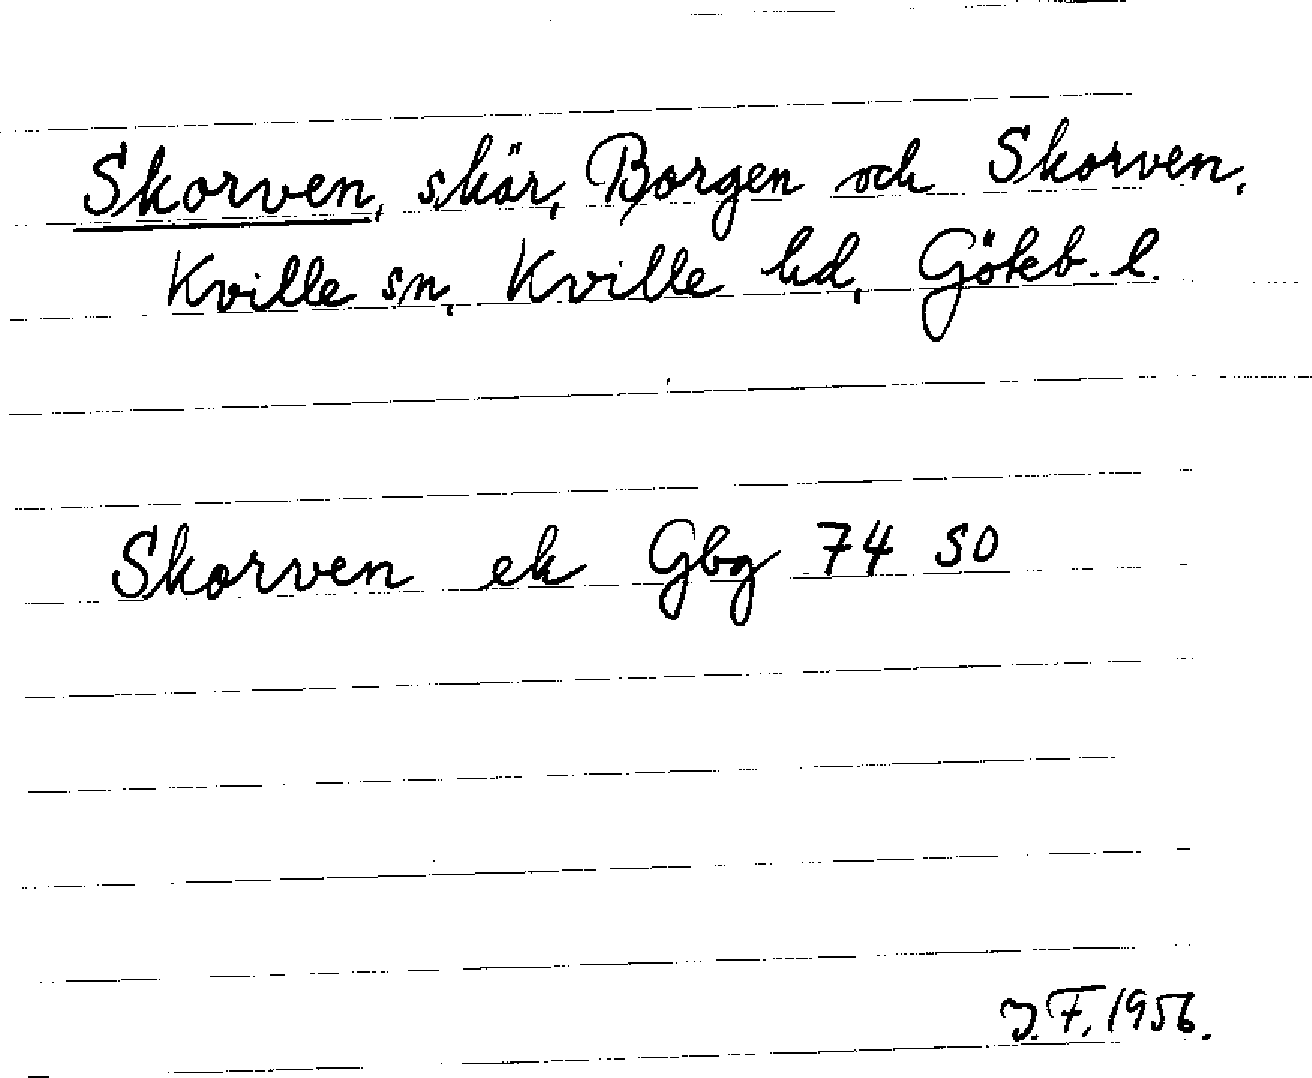 Skorven, skär, Borgen och Skorven,
Kville sn, Kville hd, Göteb. l.
Skorven ek Gbg 74 SO
J.F. 1956.